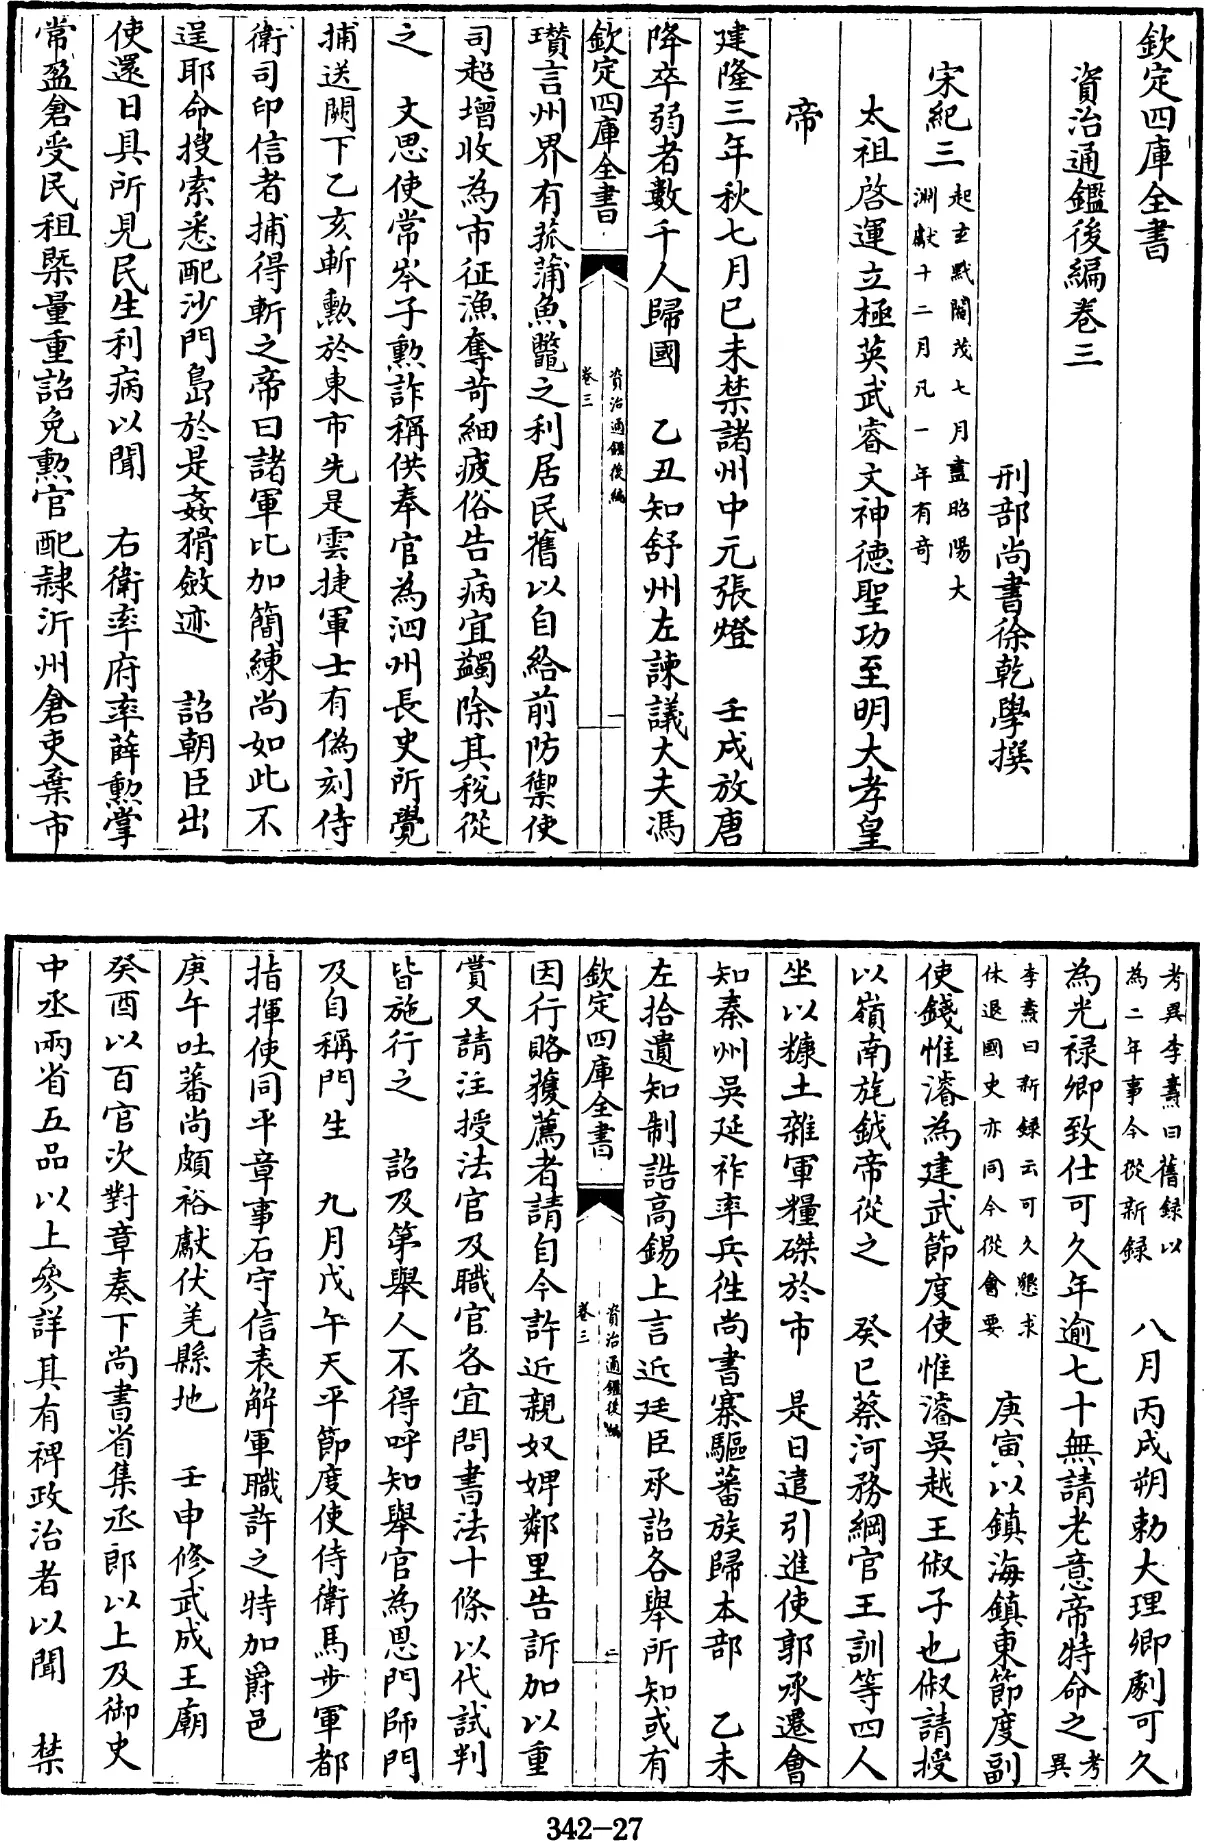 欽定四庫全書
資治通鑑後編卷三
刑部尚書徐乾學撰
宋紀三起玄黓閹茂七月盡昭陽大
淵獻十二月凡一年有奇
太祖啓運立極英武睿文神德聖功至明大孝皇
帝
建隆三年秋七月已未禁諸州中元張燈　壬戌放唐
降卒弱者數千人歸國　乙丑知舒州左諫議大夫馮
欽定四庫全書
資治通鑑後編
卷三
一
瓚言州界有菰蒲魚鼈之利居民舊以自給前防禦使
司超增收為市征漁奪苛細疲俗告病宜蠲除其稅從
之　文思使常岑子勲詐稱供奉官為泗州長吏所覺
捕送闕下乙亥斬勲於東市先是雲捷軍士有偽刻侍
衛司印信者捕得斬之帝曰諸軍比加簡練尚如此不
逞耶命搜索悉配沙門島於是姦猾斂迹　詔朝臣出
使還日具所見民生利病以聞　右衛率府率薛勲掌
常盈倉受民租槩量重詔免勲官配隸沂州倉吏棄市
考異李燾曰舊録以
為二年事今從新録　八月丙戌朔勅大理卿劇可久
為光禄卿致仕可久年逾七十無請老意帝特命之考
異
李燾曰新録云可久懇求
休退國史亦同今從會要　庚寅以鎮海鎮東節度副
使錢惟濬為建武節度使惟濬吳越王俶子也俶請授
以嶺南旄鉞帝從之　癸巳蔡河務綱官王訓等四人
坐以糠土雜軍糧磔於市　是日遣引進使郭承遷會
知秦州吳延祚率兵徃尚書寨驅蕃族歸本部　乙未
左拾遺知制誥高錫上言近廷臣承詔各舉所知或有
欽定四庫全書
資治通鑑後編
卷三
二
因行賂獲薦者請自今許近親奴婢鄰里告訴加以重
賞又請注授法官及職官各宜問書法十條以代試判
皆施行之　詔及第舉人不得呼知舉官為恩門師門
及自稱門生　九月戊午天平節度使侍衛馬步軍都
指揮使同平章事石守信表解軍職許之特加爵邑
庚午吐蕃尚頗裕獻伏羌縣地　壬申修武成王廟
癸酉以百官次對章奏下尚書省集丞郎以上及御史
中丞兩省五品以上參詳其有裨政治者以聞　禁
342-27